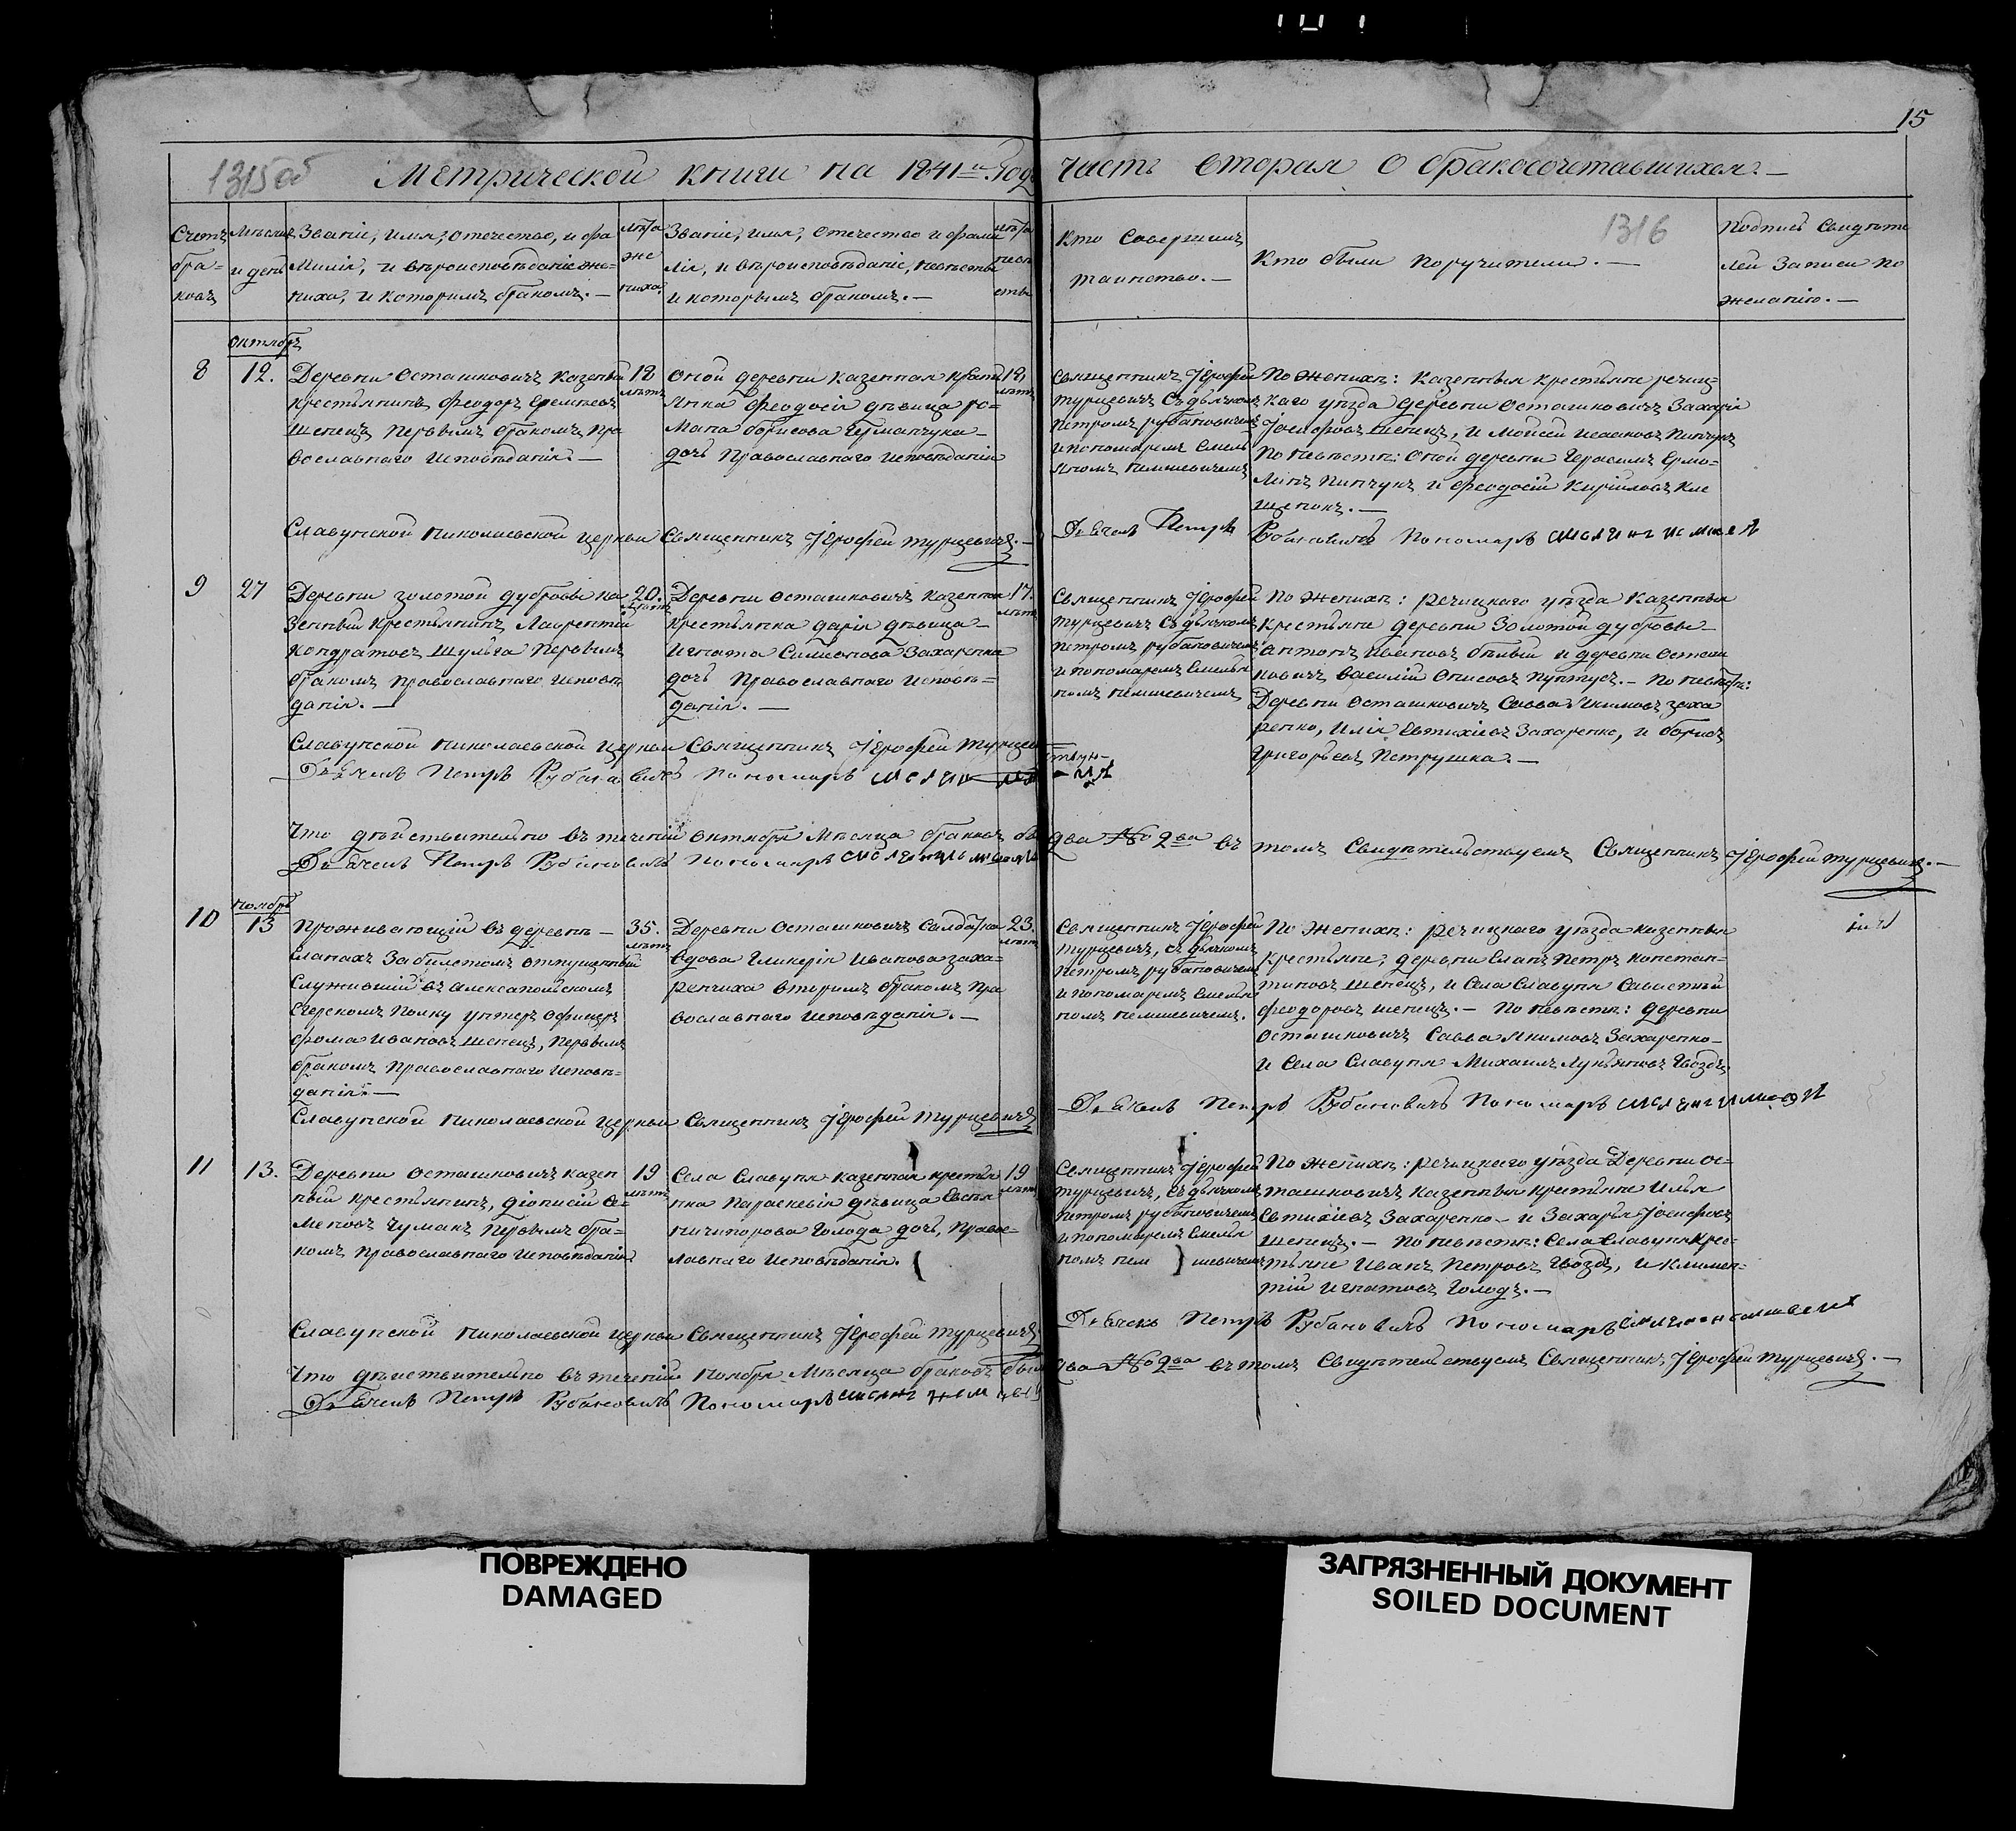 15
1315 об
Метрической книги на 1841й Годъ часть вторая о бракосочетавшихся. —
1316
Счетъ браковъ
Месяцъ и день
Званіе, имя, отечество, и фа
милія, и вѣроисповѣданіе же-
ниха, и которымъ бракомъ. —
лѣта
же
ниха.
Званіе, имя, отечество и фами
лія, и вѣроисповѣданіе, невѣсты
и которымъ бракомъ. —
лѣта
невѣ
сты
Кто совершилъ
таинство. —
Кто были поручители. —
Подпись свидѣте
лей записи по
желанію. —
октябрь
8
12.
Деревни Осташковичъ казенный
крестьянинъ Феодоръ Еремѣевъ
Шепецъ первымъ бракомъ пра
вославнаго исповѣданія. —
18
лѣтъ
оной деревни казенная крестья
янка Феодосія дѣвица ро-
мана борисова Германчука
дочь Православнаго исповѣданія
18
лѣтъ
Священникъ Іерофей
Турцевичъ съ дьячкомъ
Петромъ рубановичемъ
и пономаремъ Емель
яномъ
По женихѣ: казенныя крестьяне речиц-
каго уѣзда деревни Осташковичъ Захарія
Іосифовъ Шепецъ, и Моисей Исааковъ Пинчукъ
По невѣстѣ: оной деревни Герасимъ Ермо-
линъ Пинчукъ и Феодосій Кириловъ Кле
щенокъ. —
Славунской Николаевской церкви Священникъ Іерофей Турцевичъ. —
Дьячекъ Петръ Рубановичъ Пономарь
9
27
Деревни золотой дубровы ка
зенный крестьянинъ Лаврентій
Кондратовъ Шульга первымъ
бракомъ православнаго исповѣ
данія. —
20.
лѣтъ
Деревни Осташковичъ казенная
крестьянка дарія дѣвица —
Игната Симеонова Захаренка
дочь Православнаго исповѣ=
данія. —
17.
лѣтъ
Священникъ Іерофей
Турцевичъ съ дьячкомъ
Петромъ рубановичемъ
и пономаремъ Емелья
номъ
По женихѣ: речицкаго уѣзда казенныя
крестьяне деревни Золотой дубровы —
антонъ Ивановъ бѣлый и деревни Осташ
ковичъ Василій Пунтусъ. — По невѣстѣ:
Деревни Осташковичъ Савва Якимовъ заха
ренко, Илія Евтихіевъ Захаренко, и борисъ
Григорьевъ Петрушка. —
Славунской Николаевской церкви Священникъ Іерофей Турцевичъ
Дьячекъ Петръ Рубановичъ Пономарь
Что дѣйствительно въ теченіи октября Мѣсяца браковъ было два №о 2ва въ томъ Свидѣтельствуемъ Священникъ Іерофей Турцевичъ. —
Дьячекъ Петръ Рубановичъ Пономарь
Ноябрь
10
13
Проживающій въ деревнѣ —
Еланахъ за билетомъ отпущенный
служившій въ Александпольскомъ
Егерскомъ полку унтеръ офицеръ
Фома Ивановъ Шепецъ, первымъ
бракомъ Православнаго исповѣ=
данія. —
35.
лѣтъ
Деревни Осташковичъ Салдатка
вдова Гликерія Иванова заха-
ренчиха вторымъ бракомъ пра
вославнаго исповѣданія. —
23.
лѣтъ
Священникъ Іерофей
Турцевичъ, съ дьячкомъ
Петромъ рубановичемъ
и пономаремъ Емелья
номъ
По женихѣ: речицкаго уѣзда казенныя
крестьяне, деревни Еланъ Петръ Констан-
тиновъ Шепецъ, и Села Славуня Савастій
Феодоровъ Шепецъ. — По невѣстѣ: деревни
Осташковичъ Савва Якимовъ Захаренко —
и Села Славуня Михаилъ Лукьяновъ Гвоздь.
Славунской Николаевской церкви Священникъ Іерофей Турцевичъ
Дьячекъ Петръ Рубановичъ Пономарь
11
13.
Деревни Осташковичъ казен
ный крестьянинъ, Діонисій Се-
меновъ Чуманъ первымъ бра=
комъ православнаго исповѣданія
19
лѣтъ
Села Славуня казенная крестья
нка Параскевія дѣвица
Ничипорова Голода дочь, Правос-
лавнаго исповѣданія.
19
лѣтъ
Священникъ Іерофей
Турцевичъ, съ дьячкомъ
Петромъ рубановичемъ
и пономаремъ Емелья
номъ
По женихѣ: речицкаго уѣзда Деревни Ос-
ташковичъ казенныя крестьяне Илія
Евтихіевъ Захаренко — и Захарія Іосифовъ
Шепецъ. — По невѣстѣ: Села Славуня Крес-
тьяне Иванъ Петровъ Гвоздь, и Климен-
тій Игнатовъ Голодъ. —
Славунской Николаевской церкви Священникъ Іерофей Турцевичъ
Дьячекъ Петръ Рубановичъ Пономарь
Что дѣйствительно въ теченіи Ноября Мѣсяца браковъ было два №о 2ва въ томъ Свидѣтельствуемъ Священникъ Іерофей Турцевичъ. —
Дьячекъ Петръ Рубановичъ Пономарь
ПОВРЕЖДЕНО
DAMAGED
ЗАГРЯЗНЕННЫЙ ДОКУМЕНТ
SOILED DOCUMENT